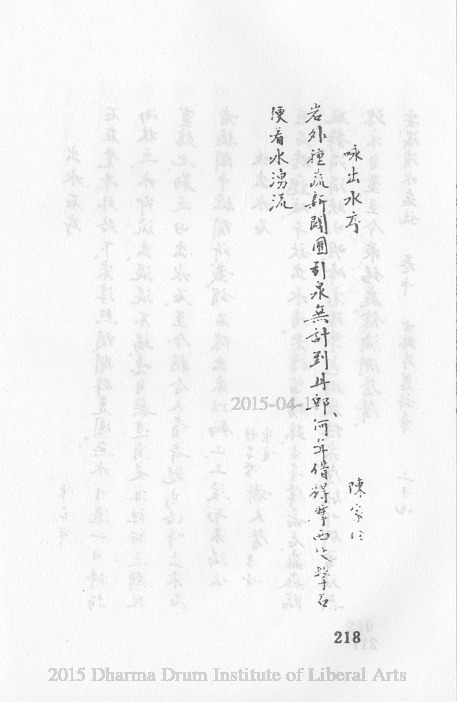 咏出水穴
陳家
岩外種蔬新闢圃引泉無計到丹邱何年借得摩西⽁擊石
便看水湧流
218
2015-04-1
2015 Dharma Drum Institute of Liberal Arts